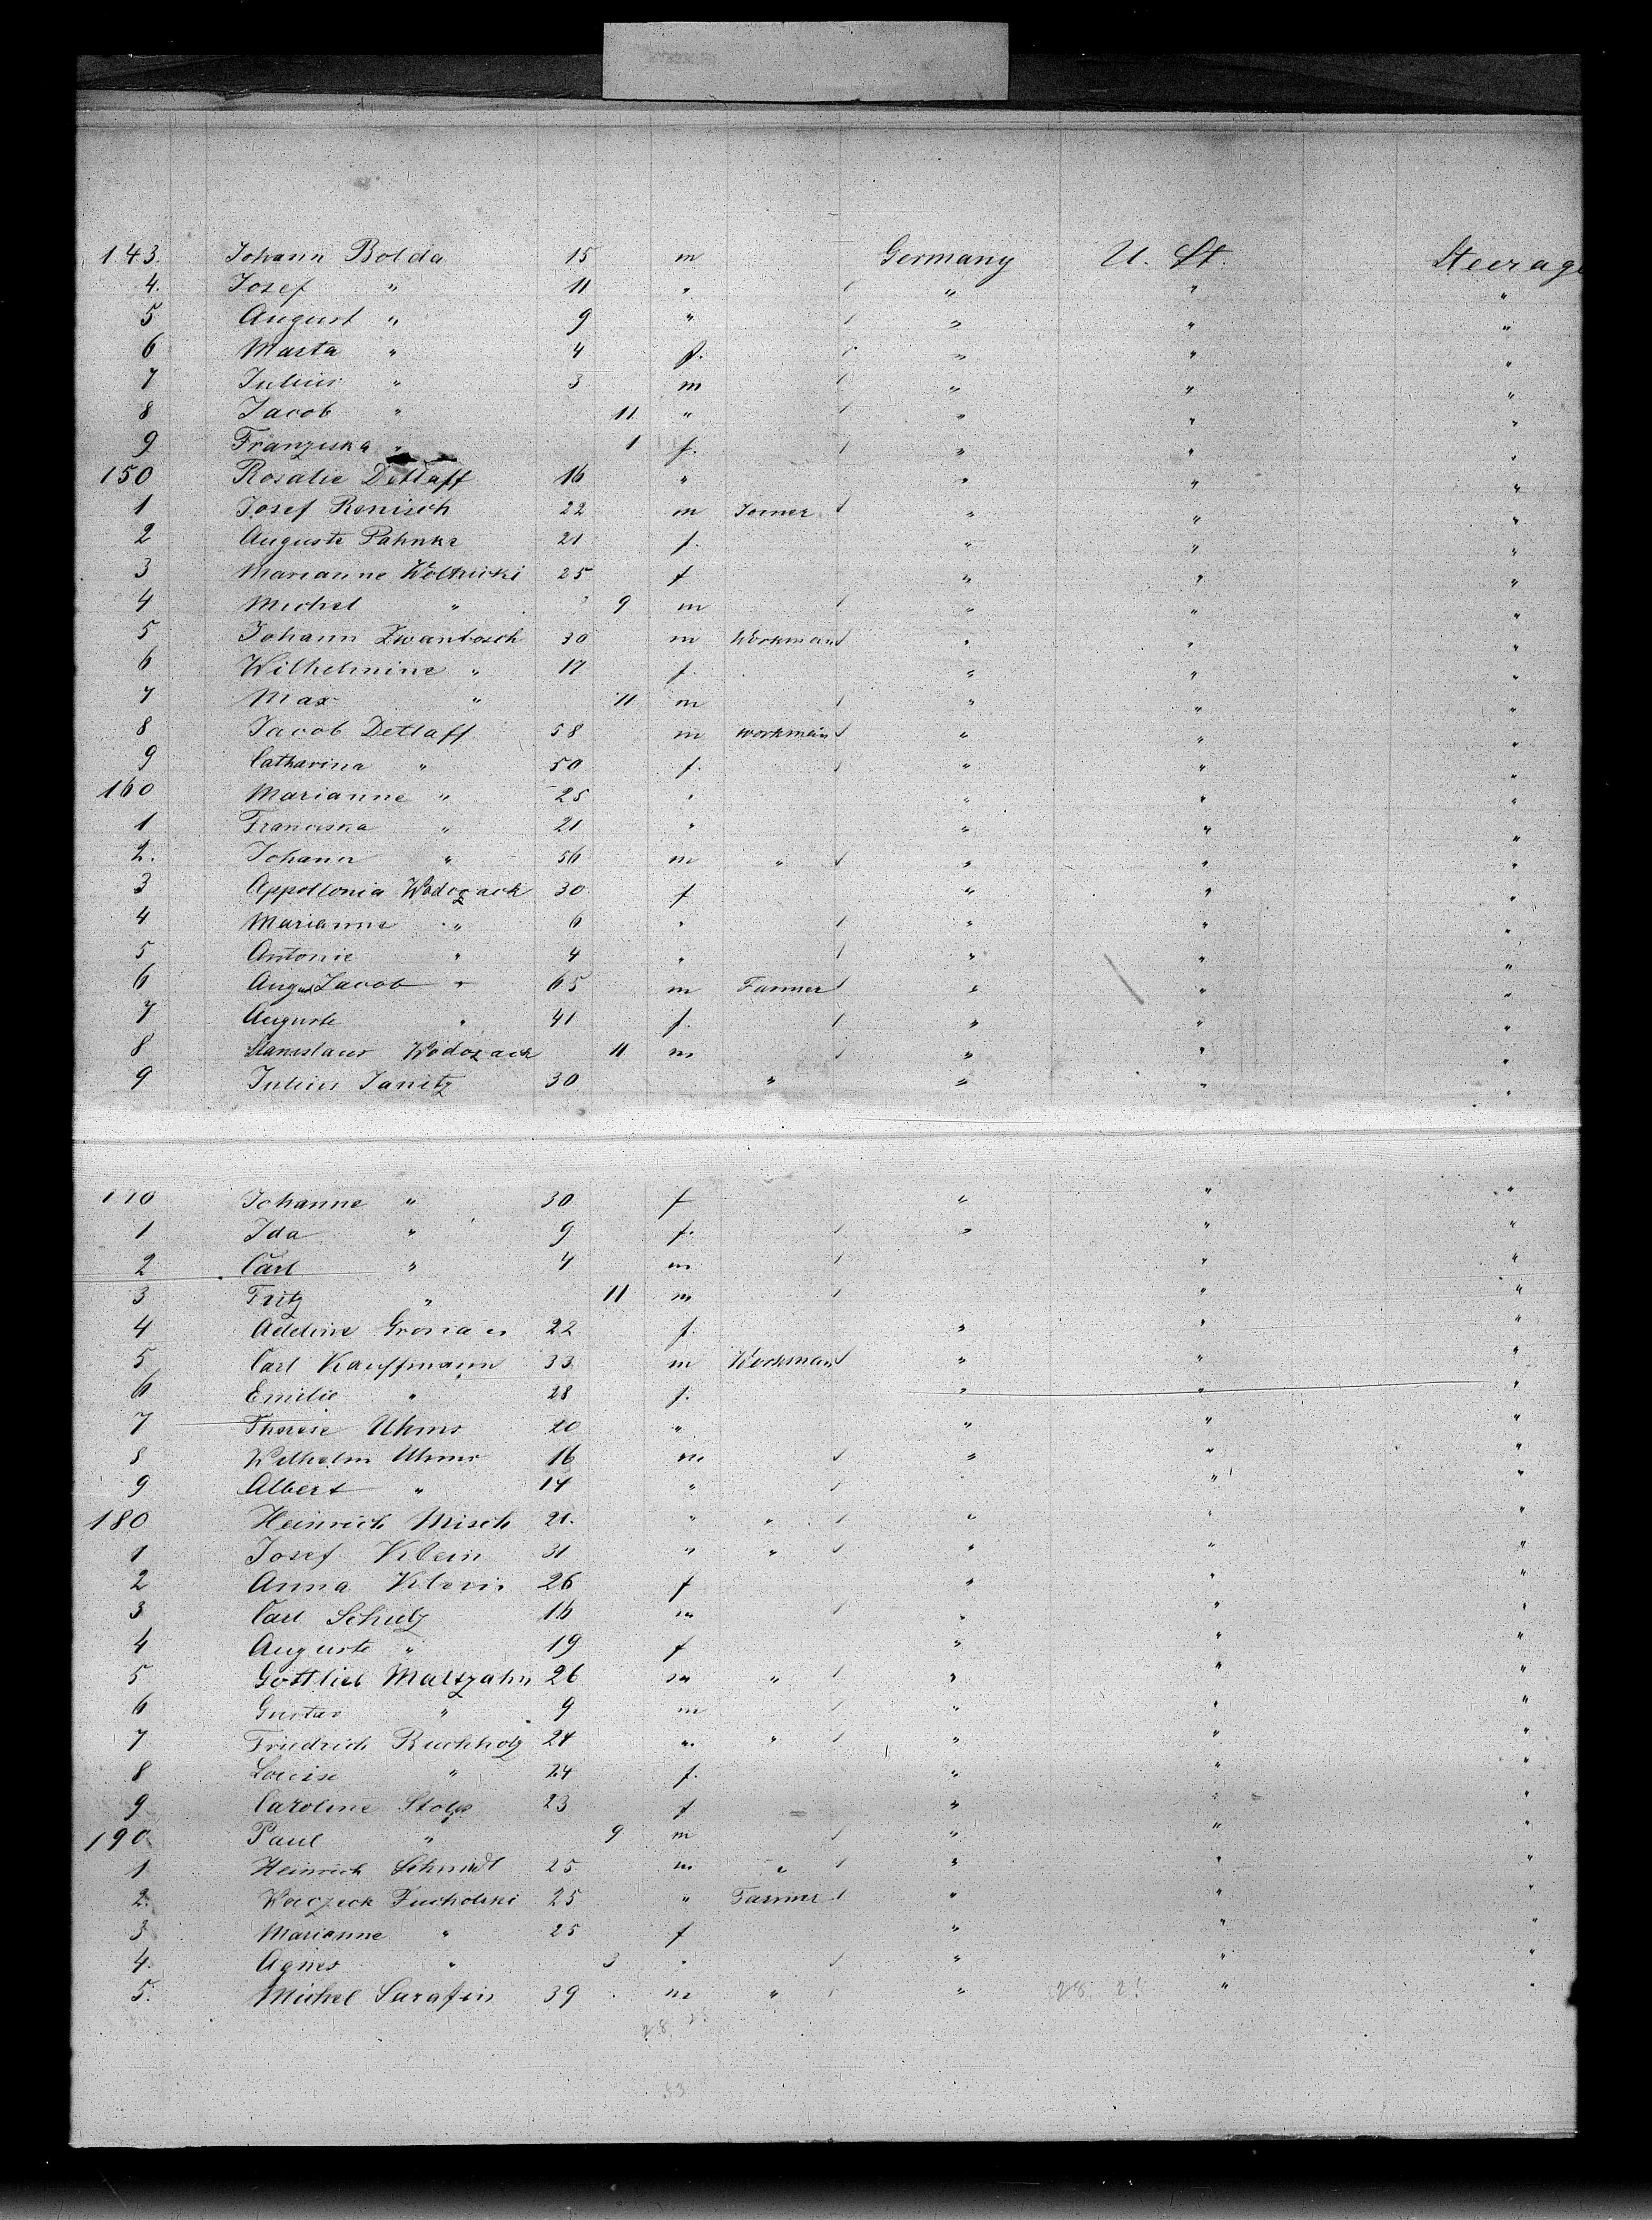 143. Johann Bolda 15 m Germany U. St. Steerage
4. Josef " 11 " " " "
5 August " 9 " " " "
6 Marta " 4 f. " " "
7 Julius " 3 m " " "
8 Jacob " 11 " " " "
9 Franziska " 1 f. " " "
150 Rosalie Detlaff 16 " " " "
1 Josef Renisch 22 m Joiner " " "
2 Auguste Pahnke 21 f. " " "
3 Marianne 25 f " " "
4 Michel " 9 m " " "
5 Johann Zwantosch 30 m Workman " " "
6 Wilhelmine " 17 f. " " "
7 Max " 11 m " " "
8 Jacob Detlaff 58 m workman " " "
9 Catharina " 50 f. " " "
160 Marianne " 25 " " " "
1 Franciska " 21 " " " "
2. Johann " 56 m " " " "
3 Appollonia Wodozack 30 f " " "
4 Marianne " 6 " " " "
5 Antonie " 4 " " " "
6 August Jacob " 65 m Farmer " " "
7 Auguste " 41 f. " " "
8 Stanislaus Wodozack 11 m " " "
9 Julius Janitz 30 " " " "
170 Johanne " 30 f " " "
1 Ida " 9 f. " " "
2 Carl " 4 m " "
3 Fritz " 11 m " "
4 Adeline 22 f. " " "
5 Carl Kauffmann 33 m Workman " " "
6 Emilie " 28 f. " " "
7 Therese Uhmr 20 " " " "
8 Wilhelm Uhmr 16 m " " "
9 Albert " 14 " " "
180 Heinrich Misch 21. " " " " "
1 Josef Klein 31 " " " " "
2 Anna Klein 26 f " " "
3 Carl Schulz 16 m " " "
4 Auguste " 19 f " " "
5 Gottlieb Maltzahn 26 m " " " "
6 Gustav " 9 m " " "
7 Friedrich Buchholz 24 m " " " "
8 Louise " 24 f. " " "
9 Caroline Stolp 23 f " " "
190 Paul " 9 m " " "
1 Heinrich Schmidt 25 m " " " "
2. Woczeck Tucholski 25 " Farmer " " "
3 Marianne " 25 f " " "
4. Agnes " 3 " " " "
5. Michel Sarafin 39 m " " " "